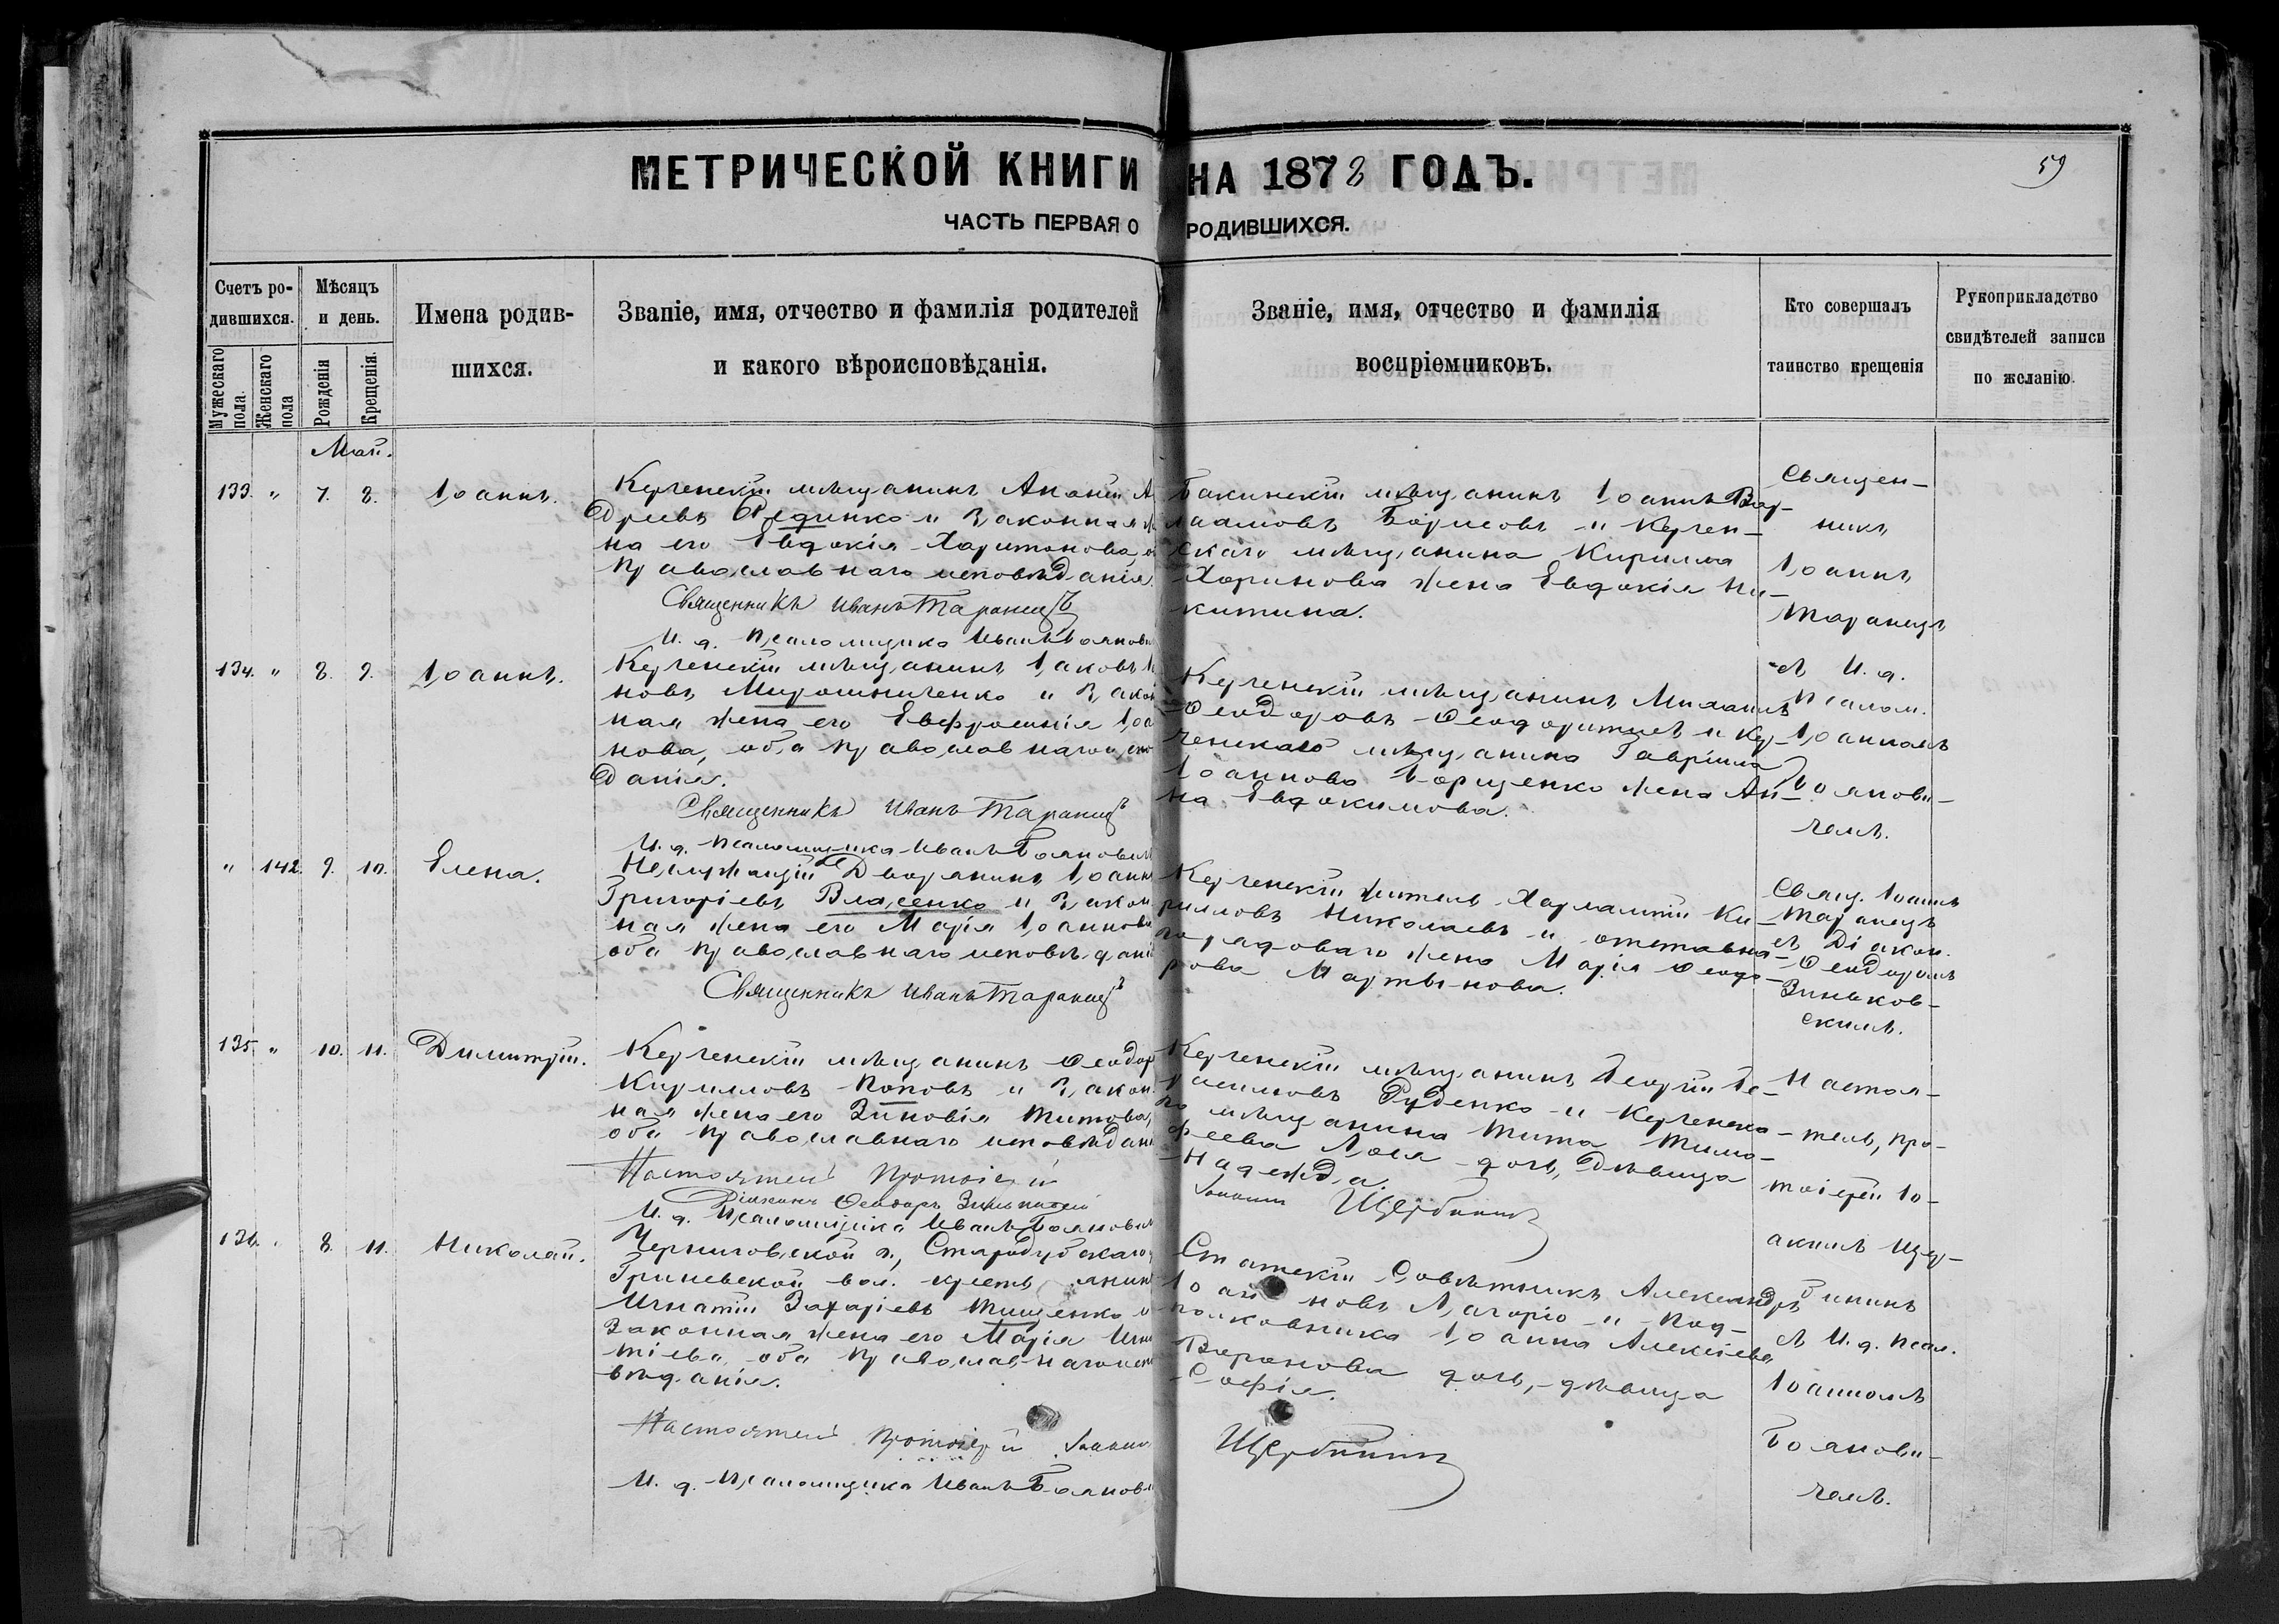 МЕТРИЧЕСКОЙ КНИГИ НА 1878 ГОДЪ.
59
ЧАСТЬ ПЕРВАЯ О РОДИВШИХСЯ.
Счетъ родившихся.
Мужескаго пола.
Женскаго пола
Мѣсяцъ и день.
Рожденія
Крещенія.
Имена родив-
шихся.
Званіе, имя, отчество и фамилія родителей
и какого вѣроисповѣданія.
Званіе, имя, отчество и фамилія
воспріемниковъ.
Кто совершалъ
таинство крещенія
Рукоприкладство
свидѣтелей записи
по желанію.
Май.
133. " 7. 8. Іоаннъ.
Керченскій мѣщанинъ
и законная
на его Евдокія Харитонова
православнаго исповѣданія.
Священникъ Иванъ Таранецъ
И. д. Псаломщика Иванъ Боянови
Бакинскій мѣщанинъ Іоаннъ Вар-
лаамовъ Борисовъ и Керчен-
скаго мѣщанина Кирилла
жена Евдокія Ни-
китина.
Священ-
никъ
Іоаннъ
Таранецъ
съ И. д.
Псалом.
Іоанномъ
Боянови-
чемъ.
134. " 8. 9. Іоаннъ.
Керченскій мѣщанинъ Іаковъ
новъ Мирошниченко и закон
ная жена его Евфросинія Іоа
нова, оба православнаго
данія.
Священникъ Иванъ Таранецъ
И. д. Псаломщика Иванъ Боянович
Керченскій мѣщанинъ Михаилъ
Ѳеодоровъ и Кер-
ченскаго мѣщанина Гавріила
Іоаннова жена Ан-
на Евдокимова.
" 142. 9. 10. Елена.
Дворянинъ Іоанн
Григоріевъ Власенко и закон
ная жена его Марія Іоаннова
оба православнаго исповѣдані
Священникъ Иванъ Таранецъ
Керченскій житель Харлампій Ки-
рилловъ Николаевъ и отставна-
го рядоваго жена Марія Ѳеодо-
рова Мартынова.
Свящ. Іоаннъ
Таранецъ
съ Діакон.
Ѳеодоромъ
Зиньков-
скимъ.
135. " 10. 11. Димитрій.
Керченскій мѣщанинъ Ѳеодор
Кирилловъ Поповъ и закон
ная жена его Зиновія Титова,
оба православнаго исповѣдан
Настоятель Протоіерей
Діаконъ Ѳеодоръ Зиньковскій
И. д. Псаломщика Иванъ Боянович
Керченскій мѣщанинъ Георгій Ге-
расимовъ Руденко и Керченска-
го мѣщанина Тита Тимо-
феева дочь, дѣвица
Надежда.
Іоаннъ Щербининъ
Настоя-
тель, Про-
тоіерей Іо-
аннъ Щер-
бининъ
съ И. д. Псал.
Іоанномъ
Боянови-
чемъ.
136. " 8. 11. Николай.
Черниговской г., Стародубскаго
Гриневской вол. крестьянин
Игнатій Захаріевъ Тищенко и
законная жена его Марія Игна
тіева, оба православнаго испо
вѣданія.
Настоятель Протоіерей Іоанн
И. д. Псаломщика Иванъ Боянов
Статскій Совѣтникъ Александръ
Іоанновъ Лагоріо и Под-
полковника Іоанна Алексіева
дочь, дѣвица
Софія.
Щербининъ